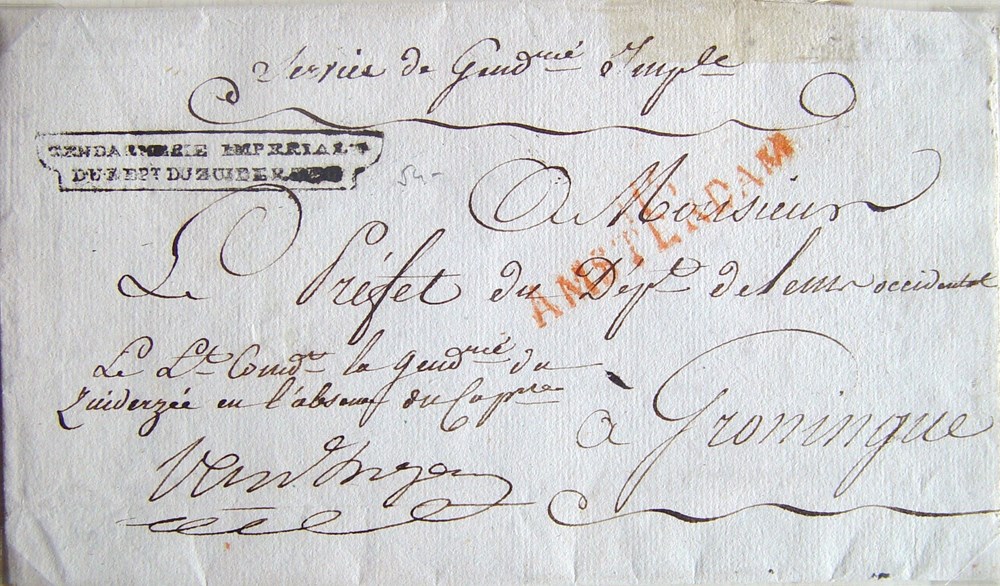 Service de Gend.rie Imp.le
GENDARMERIE IMPERIALE
DU DEP.T DU ZUIDERZEE
54-
A Monsieur
AMSTERDAM
Le Préfet du Dép.t de l'ems occidental
Le L.t Comd.t la Gend.rie du
Zuiderzée en l'absence du Cap.ne
à Groningue